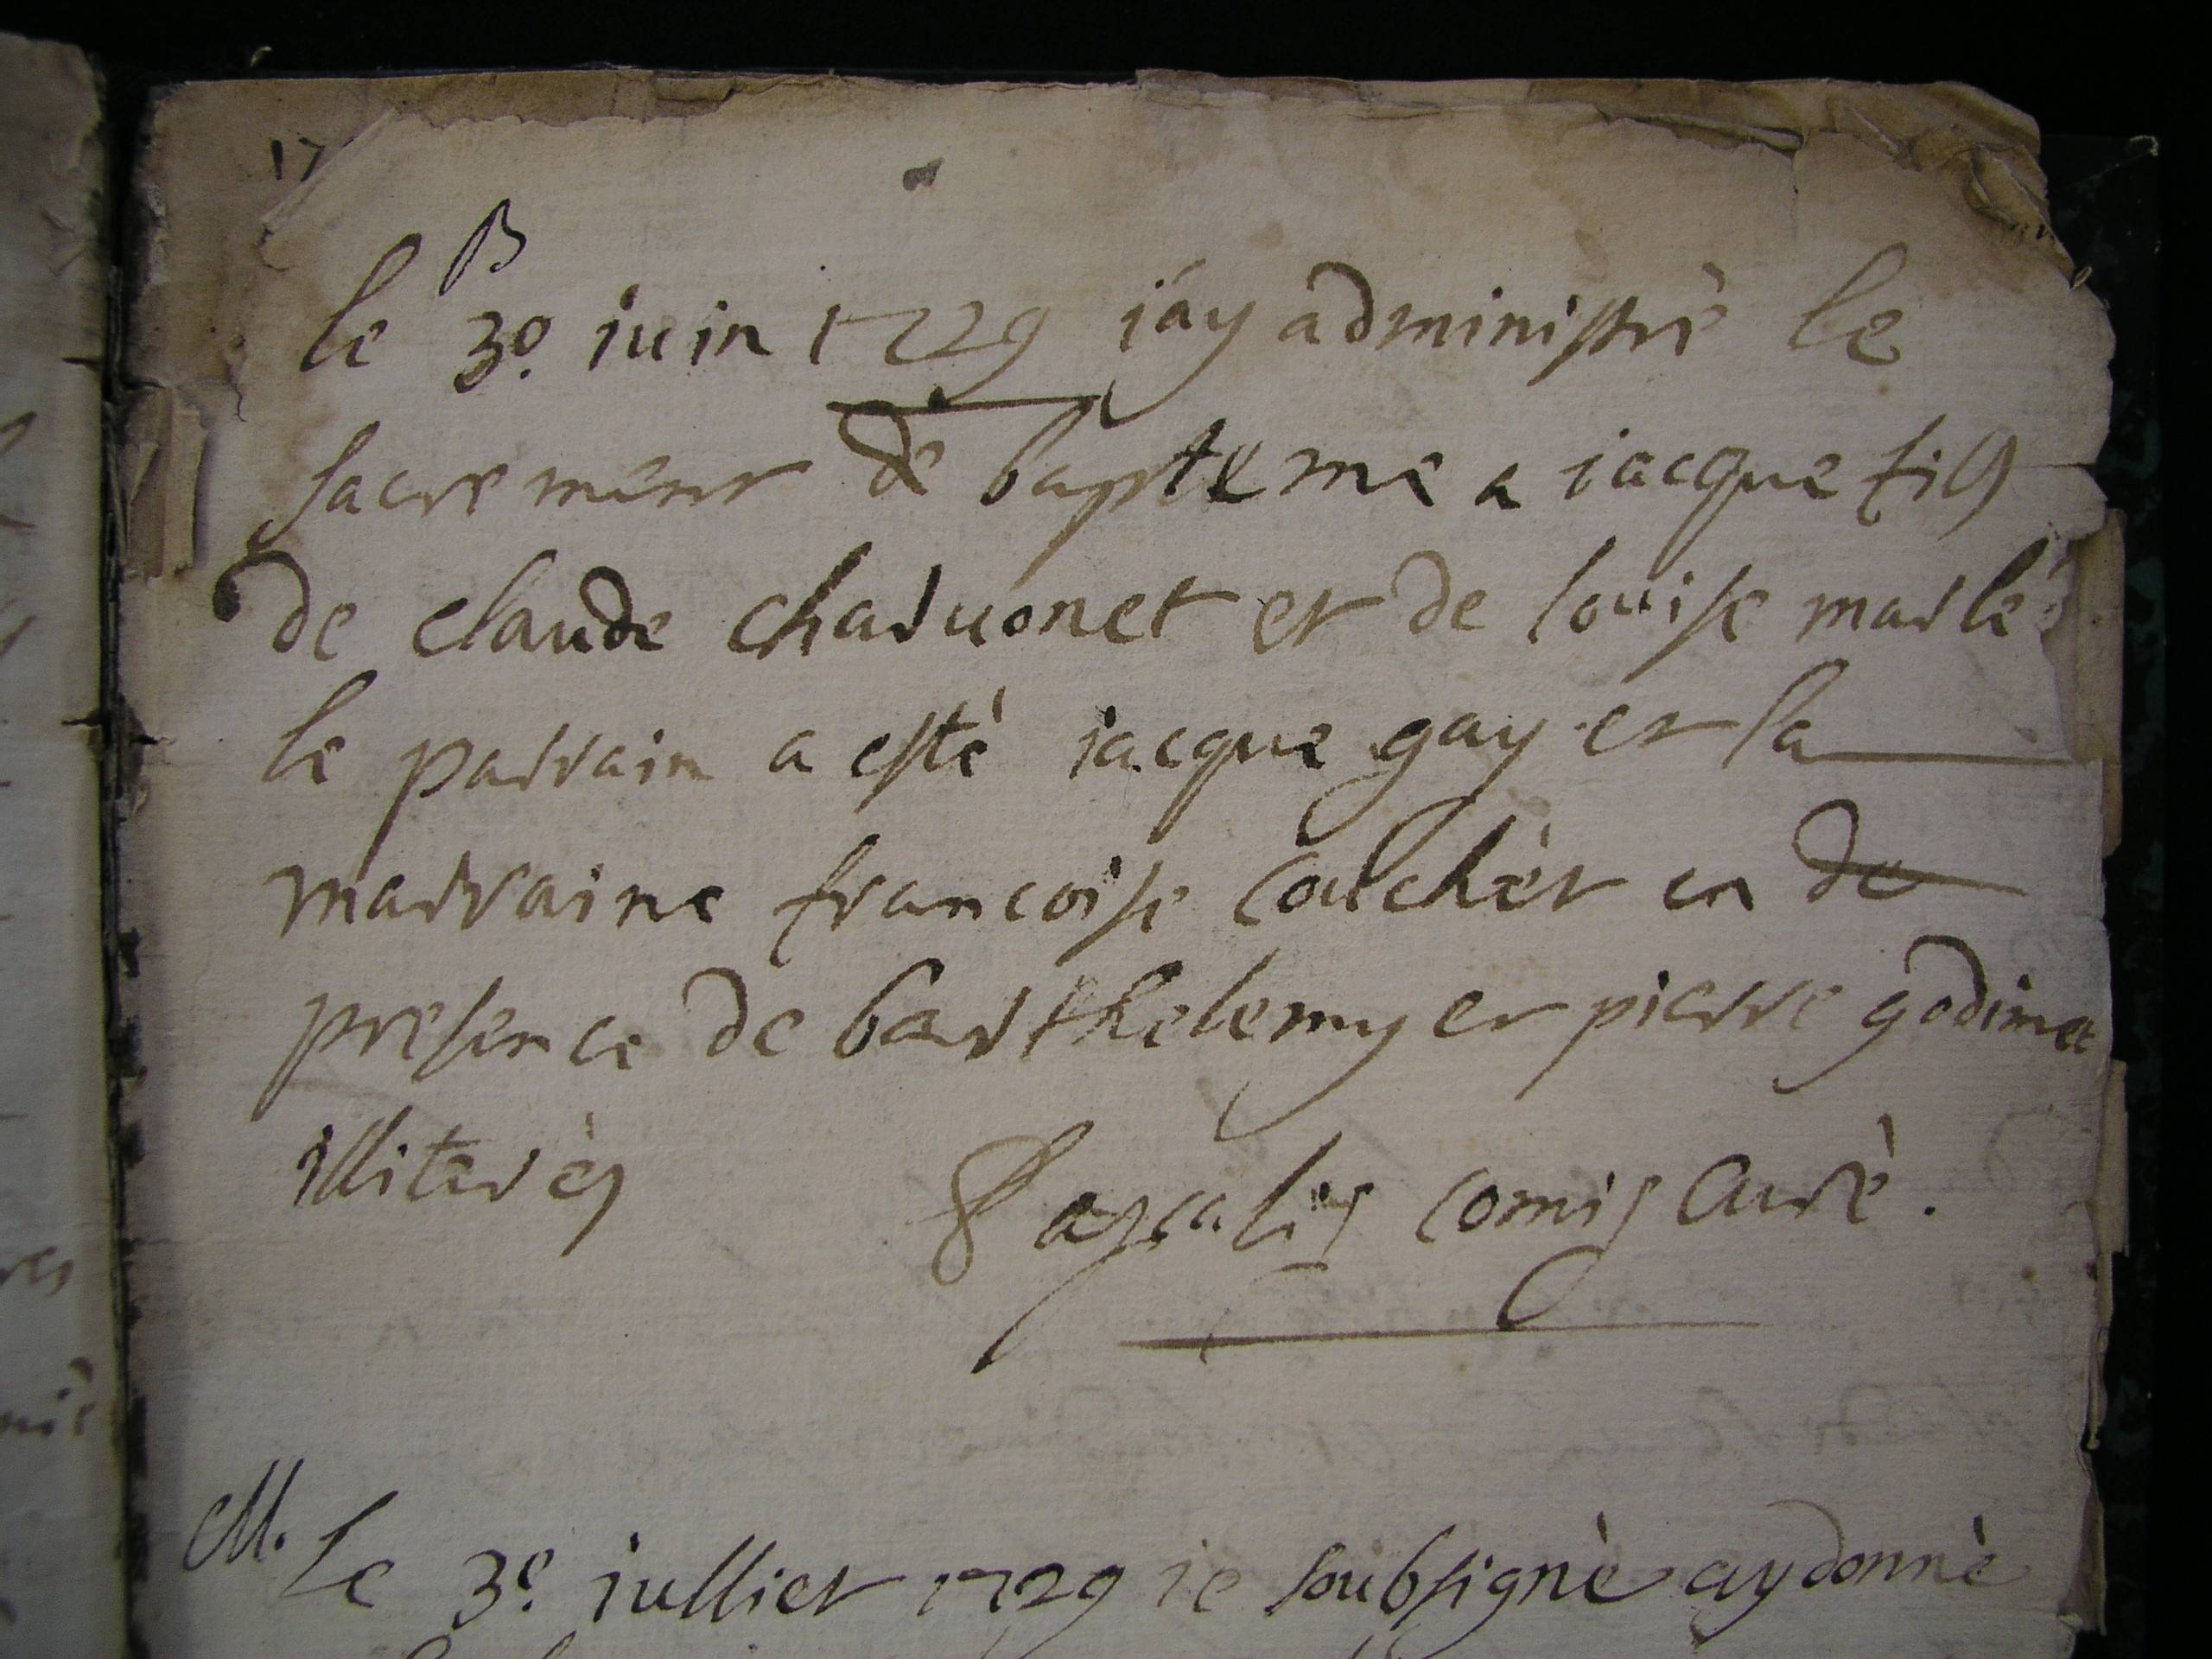 17
B
le 3e juin 1729 j'ay administrè le
sacrement de bapteme a jacque fils
de claude charvonet et de louise marle
le parrain a estè jacque gay et la
marraine francoise couchèt en de
presence de barthelemy et pierre godimet
illiterès
Pascalis comis curè.
M. Le 3e julliet 1729 je soubsignè ay donnè